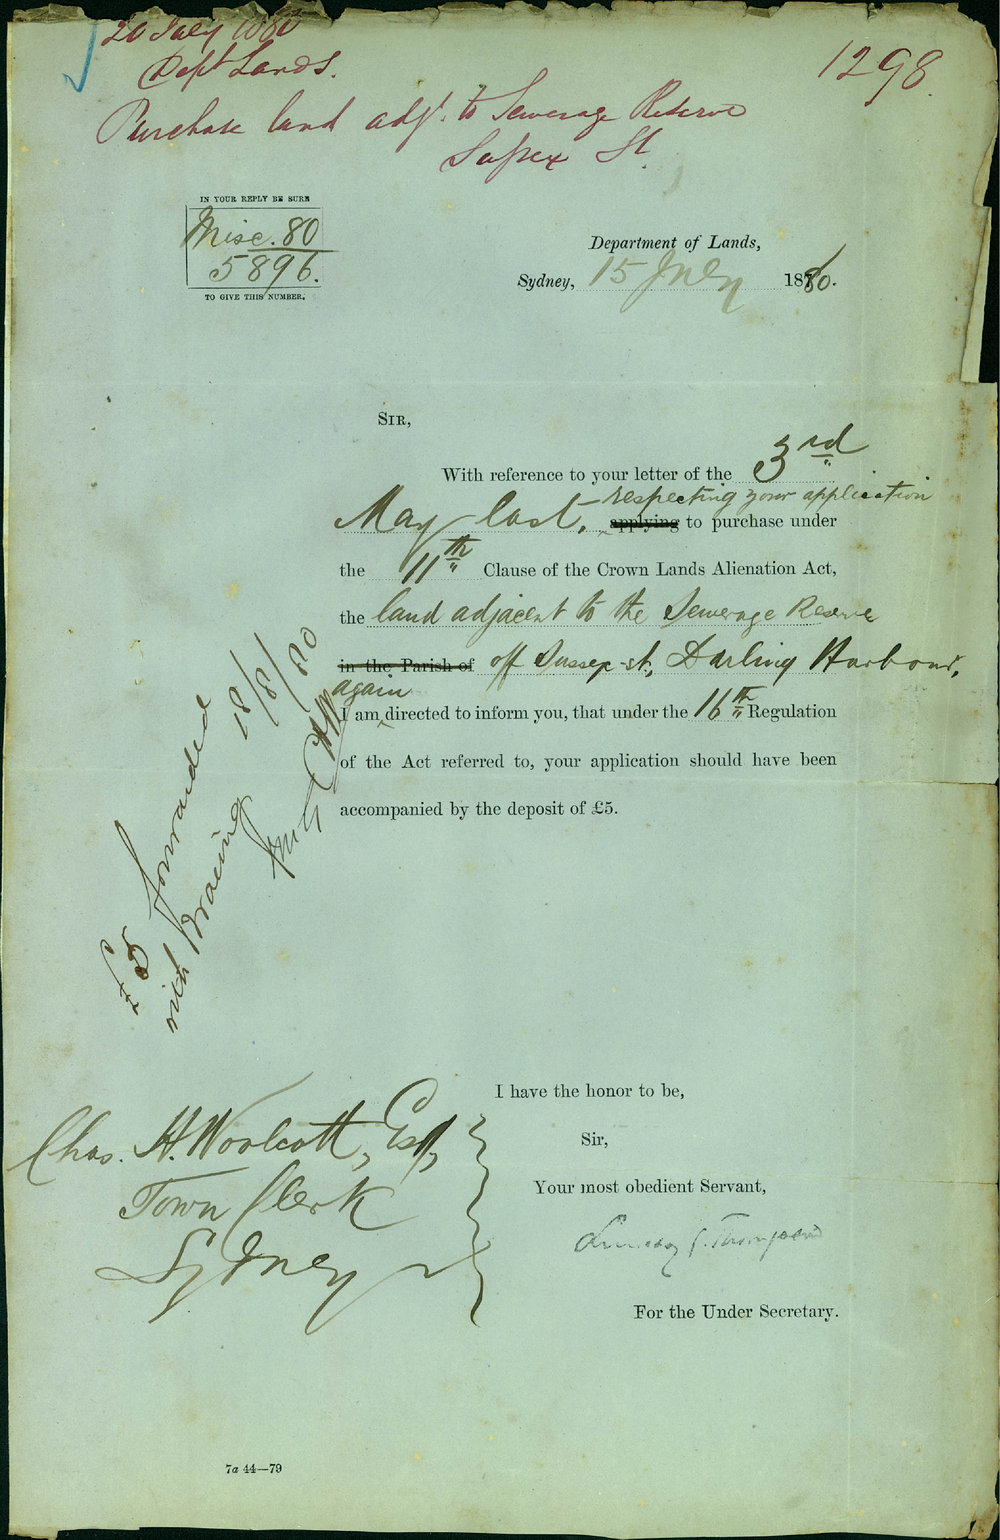 20 July 1880
Dept Lands.
1298
Purchase land adjt. to Sewerage Reserve
Sussex St.
IN YOUR REPLY BE SURE
Misc. 80
5896.
TO GIVE THIS NUMBER.
Department of Lands,
Sydney, 15 July 1880.
SIR,
With reference to your letter of the 3rd
respecting your application
May last, applying to purchase under
the 11th Clause of the Crown Lands Alienation Act,
the land adjacent to the Sewerage Reserve
in the Parish of off Sussex st., Darling Harbour,
again
I am directed to inform you, that under the 16th Regulation
of the Act referred to, your application should have been
accompanied by the deposit of £5.
£5 forwarded
with tracing 18/8/80
I have the honor to be,
Sir,
Your most obedient Servant,
For the Under Secretary.
Chas. H. Woolcott, Esq,
Town Clerk
Sydney
7a 44—79